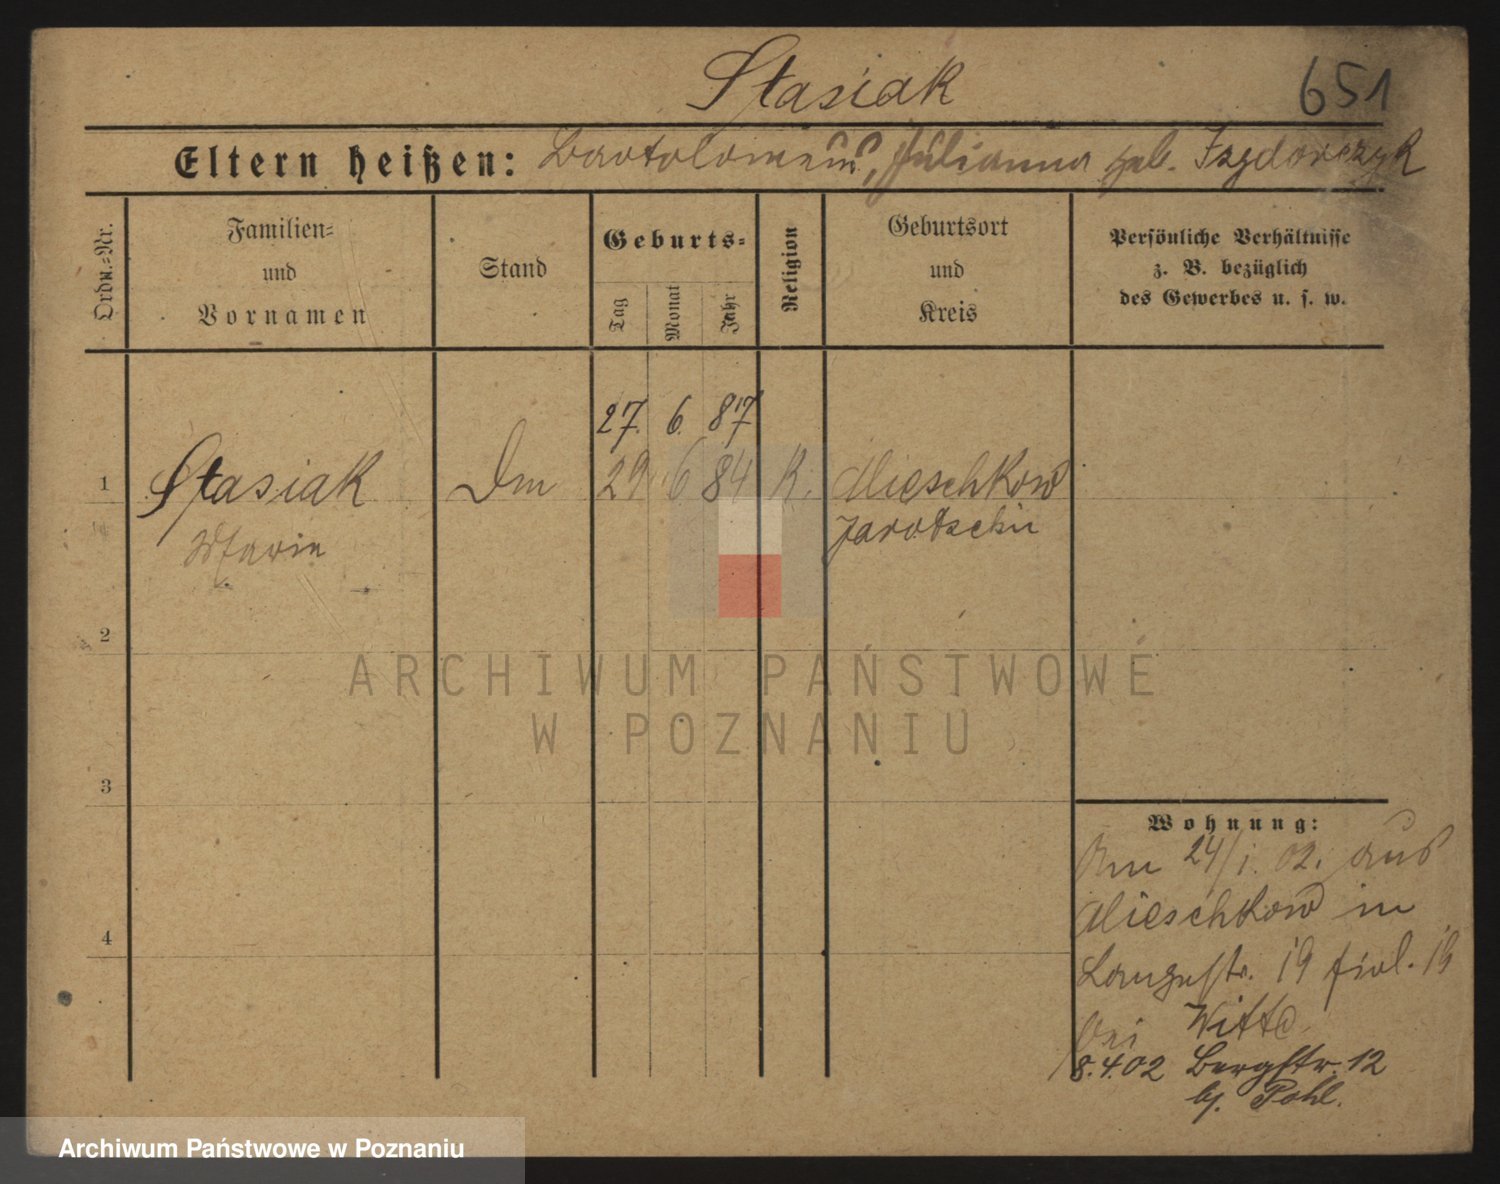 Stasiak 651
Eltern heißen: Bartolomeus, Julianna geb. Izydorczyk
Ordn.-Nr.
Familien-
und
Vornamen
Stand
Geburts-
Tag
Monat
Jahr
Religion
Geburtsort
und
Kreis
Persönliche Verhältnisse
z. B. bezüglich
des Gewerbes u. s. w.
27. 6. 87
1 Stasiak Dm 29 6 84 K. Mieschkow
Marie Jarotschin
2
3
4
Wohnung:
Am 24/1. 02. aus
Mieschkow in
Langestr. 19
bei Witte
8.4.02 Bergstr. 12
b. Pohl.
ARCHIWUM PAŃSTWOWE
W POZNANIU
Archiwum Państwowe w Poznaniu